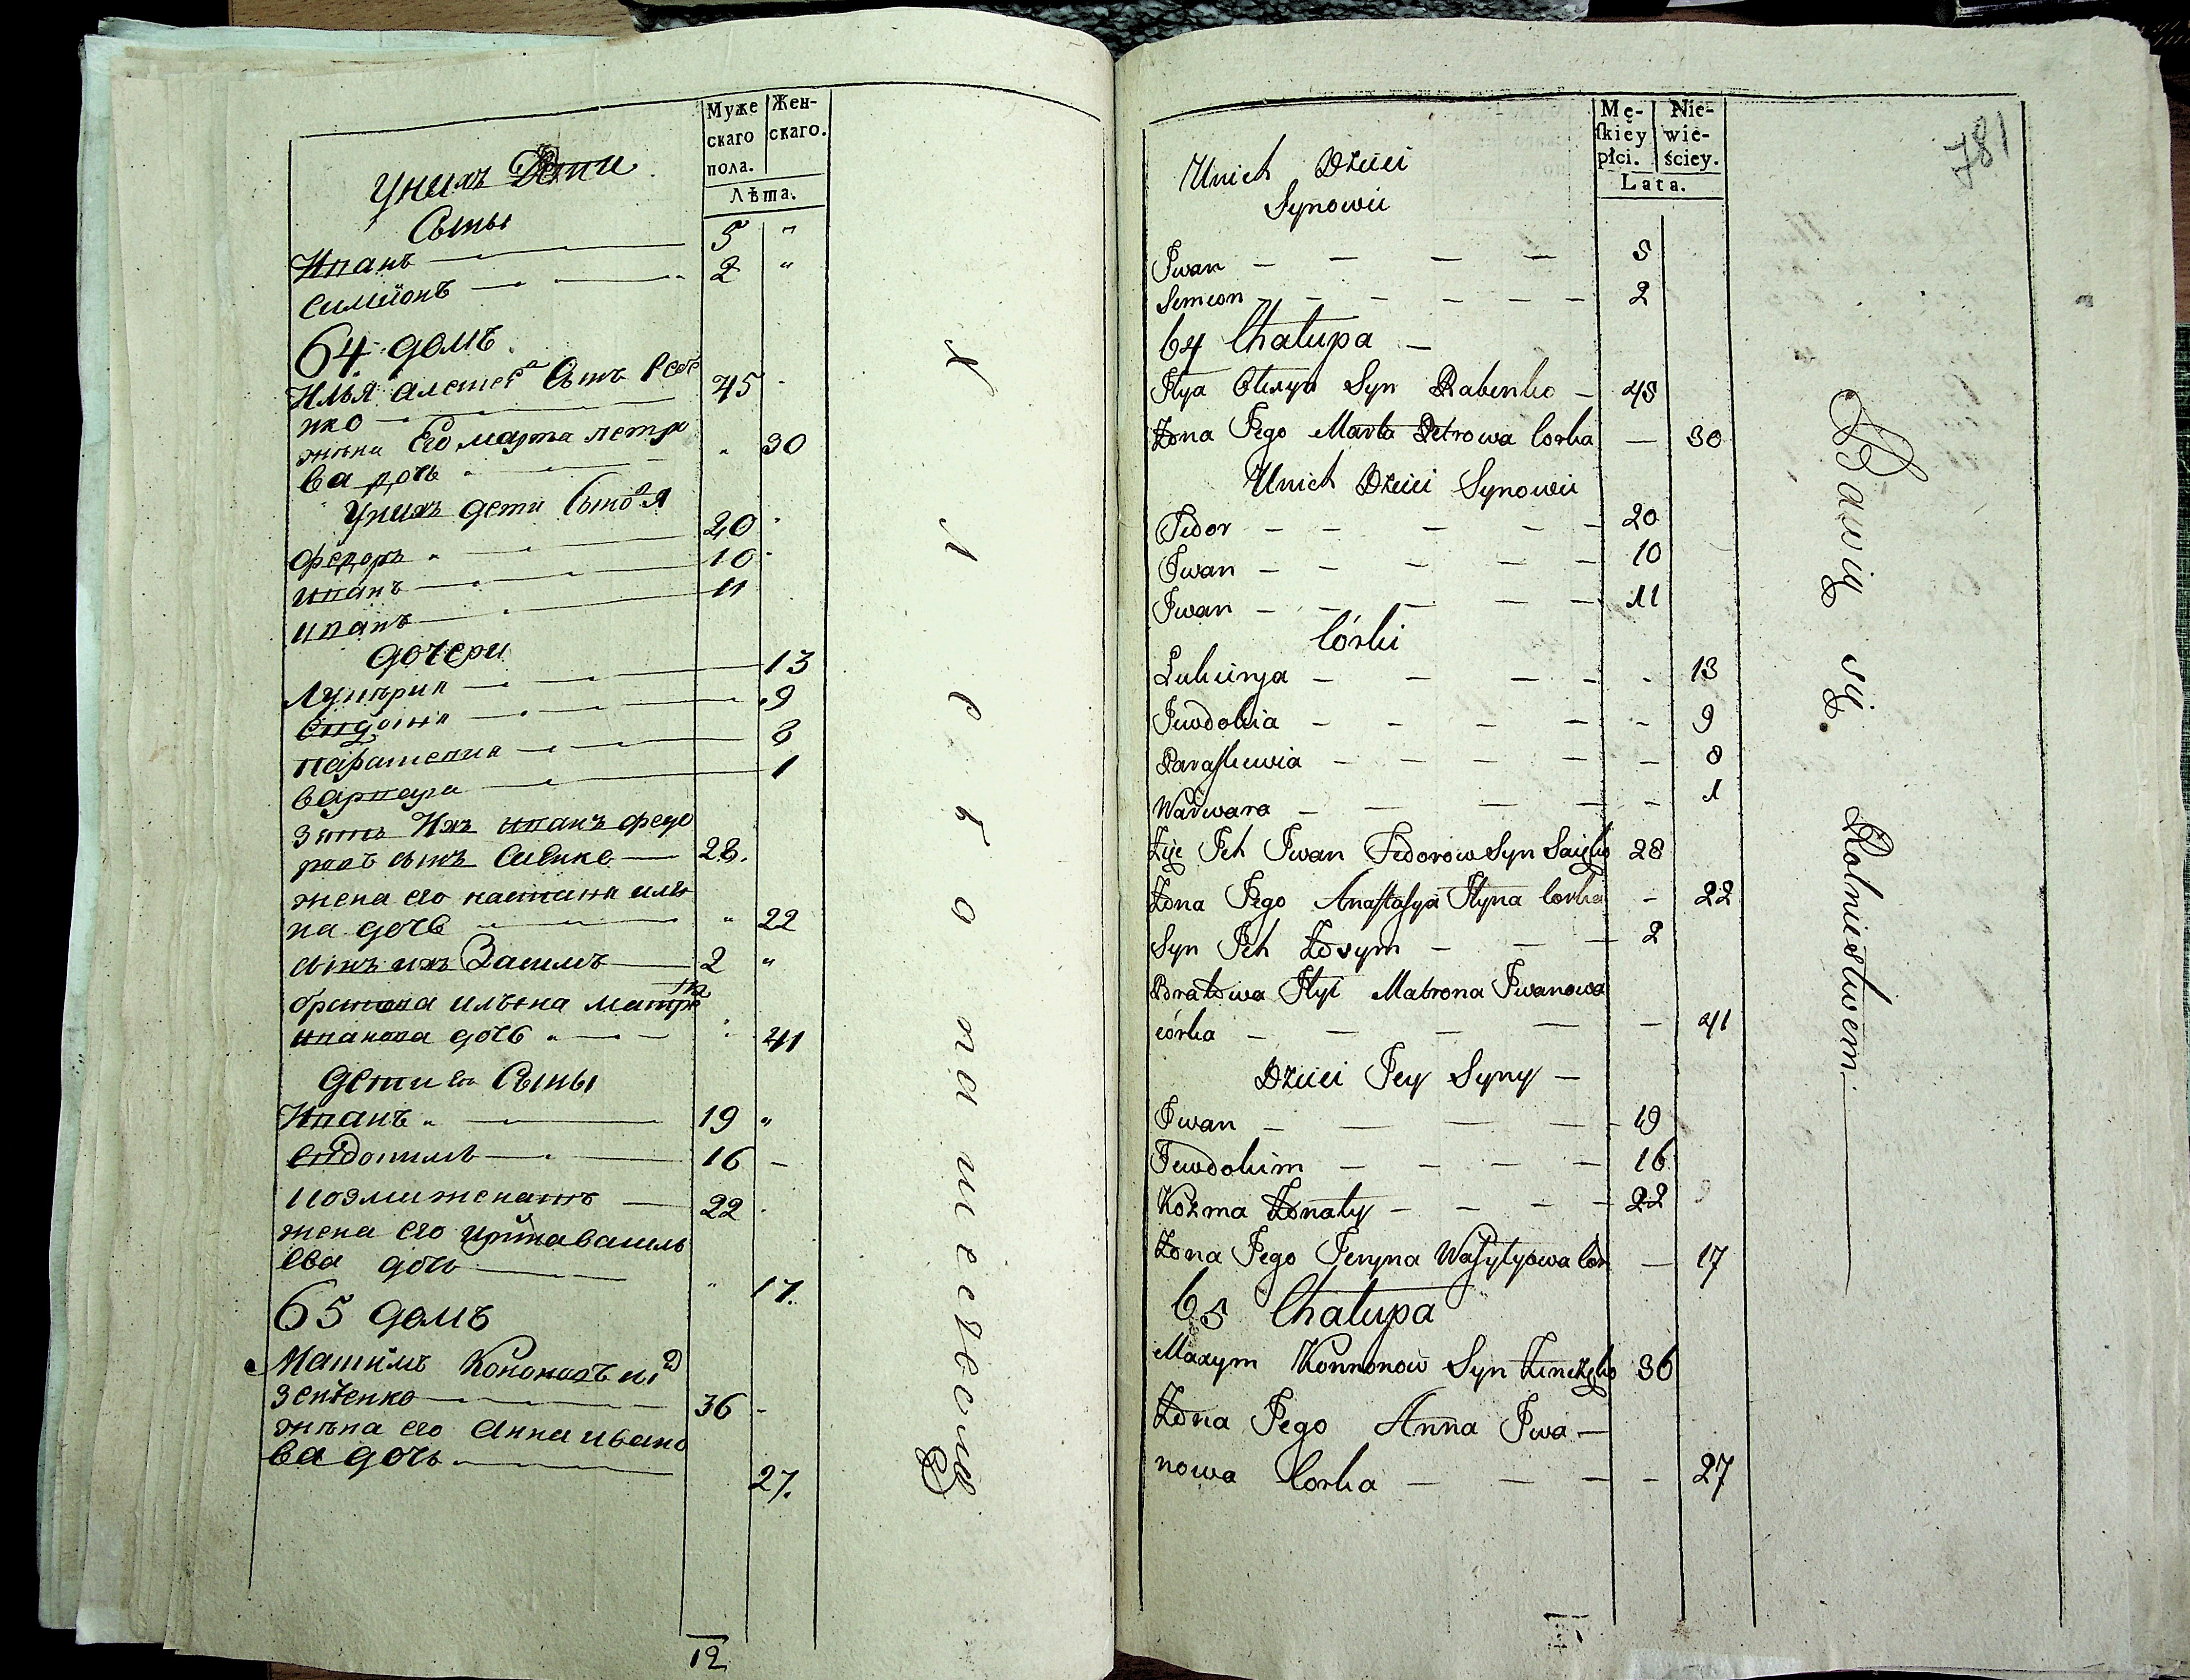 Муже
скаго
пола.
Жен-
скаго.
Лѣта.
Унихъ Дети
Сыны
Иванъ 5 "
Симионъ 2 "
64 домъ
Илья Алексеевъ Сынъ Рабе
нко 45
жена Его марта петро
ва дочь " 30
Унихъ дети Сыновья
Федоръ 20
иванъ 10
иванъ 11
дочери
Лукирия 13
Евдокия 9
Парасковия 8
варвара 1
зять Ихъ иванъ федо
ровъ сынъ Саенко 28.
жена его настасия илье
на дочь " 22
сынъ ихъ Зосимъ 2 "
братова ильина матрона
иванова дочь " 41
дети ея Сыны
Иванъ 19 "
Евдокимъ 16
козма женатъ 22
жена его ирина василь
ева дочь " 17.
65 домъ
Максимъ Кононовъ
Зенченко 36
жена его Анна ивано
ва дочь 27.
Хлебопашествомъ
12
Mę-
skiey
płci.
Nie-
wie-
ściey.
Lata.
781
Unich Dzieci
Synowii
Iwan 5
Semion 2
64 Chałupa
Ilya Olexya Syn Rabenko 45
Żona Jego Marta Petrowa Corka 30
Unich Dzieci Synowii
Fedor 20
Iwan 10
Iwan 11
Córki
Lukirya 13
Jewdokia 9
Paraskewia 8
Warwara 1
Zięć Ich Iwan Fedorow Syn Saięko 28
Żona Jego Anastasya Ilyna Corka 22
Syn Ich Zosym 2
Bratowa Ilyi Matrona Iwanowa
córka 41
Dzieci Jey Syny
Iwan 19
Jewdokim 16
Kozma Żonaty 22
Żona Jego Jeryna Wasylyowa Cór 17
65 Chałupa
Maxym Konnonow Syn Zinczęko 36
Żona Jego Anna Iwa-
nowa Corka 27
Bawią się Rolnictwem